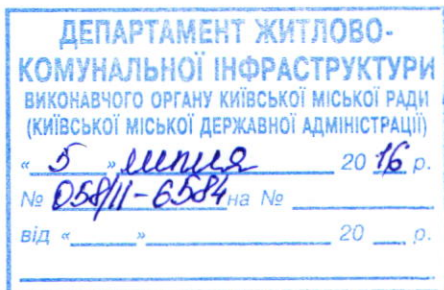 ДЕПАРТАМЕНТ ЖИТЛОВО-
КОМУНАЛЬНОЇ ІНФРАСТРУКТУРИ
ВИКОНАВЧОГО ОРГАНУ КИЇВСЬКОЇ МІСЬКОЇ РАДИ
(КИЇВСЬКОЇ МІСЬКОЇ ДЕРЖАВНОЇ АДМІНІСТРАЦІЇ)
« 5 » липня 20 16 р.
№ 058/11-6584 на № ______
від «____» ______ 20 __ р.